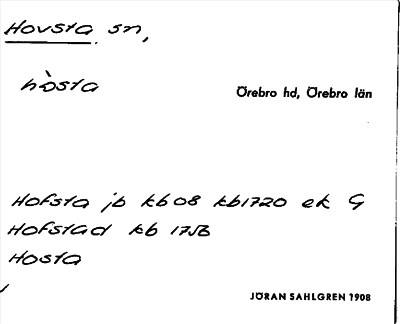 Hovsta sn,
hòsta
Örebro hd, Örebro län
Hofsta jb kb 08 kb1720 ek G
Hofstad kb 1758
Hosta
JÖRAN SAHLGREN 1908